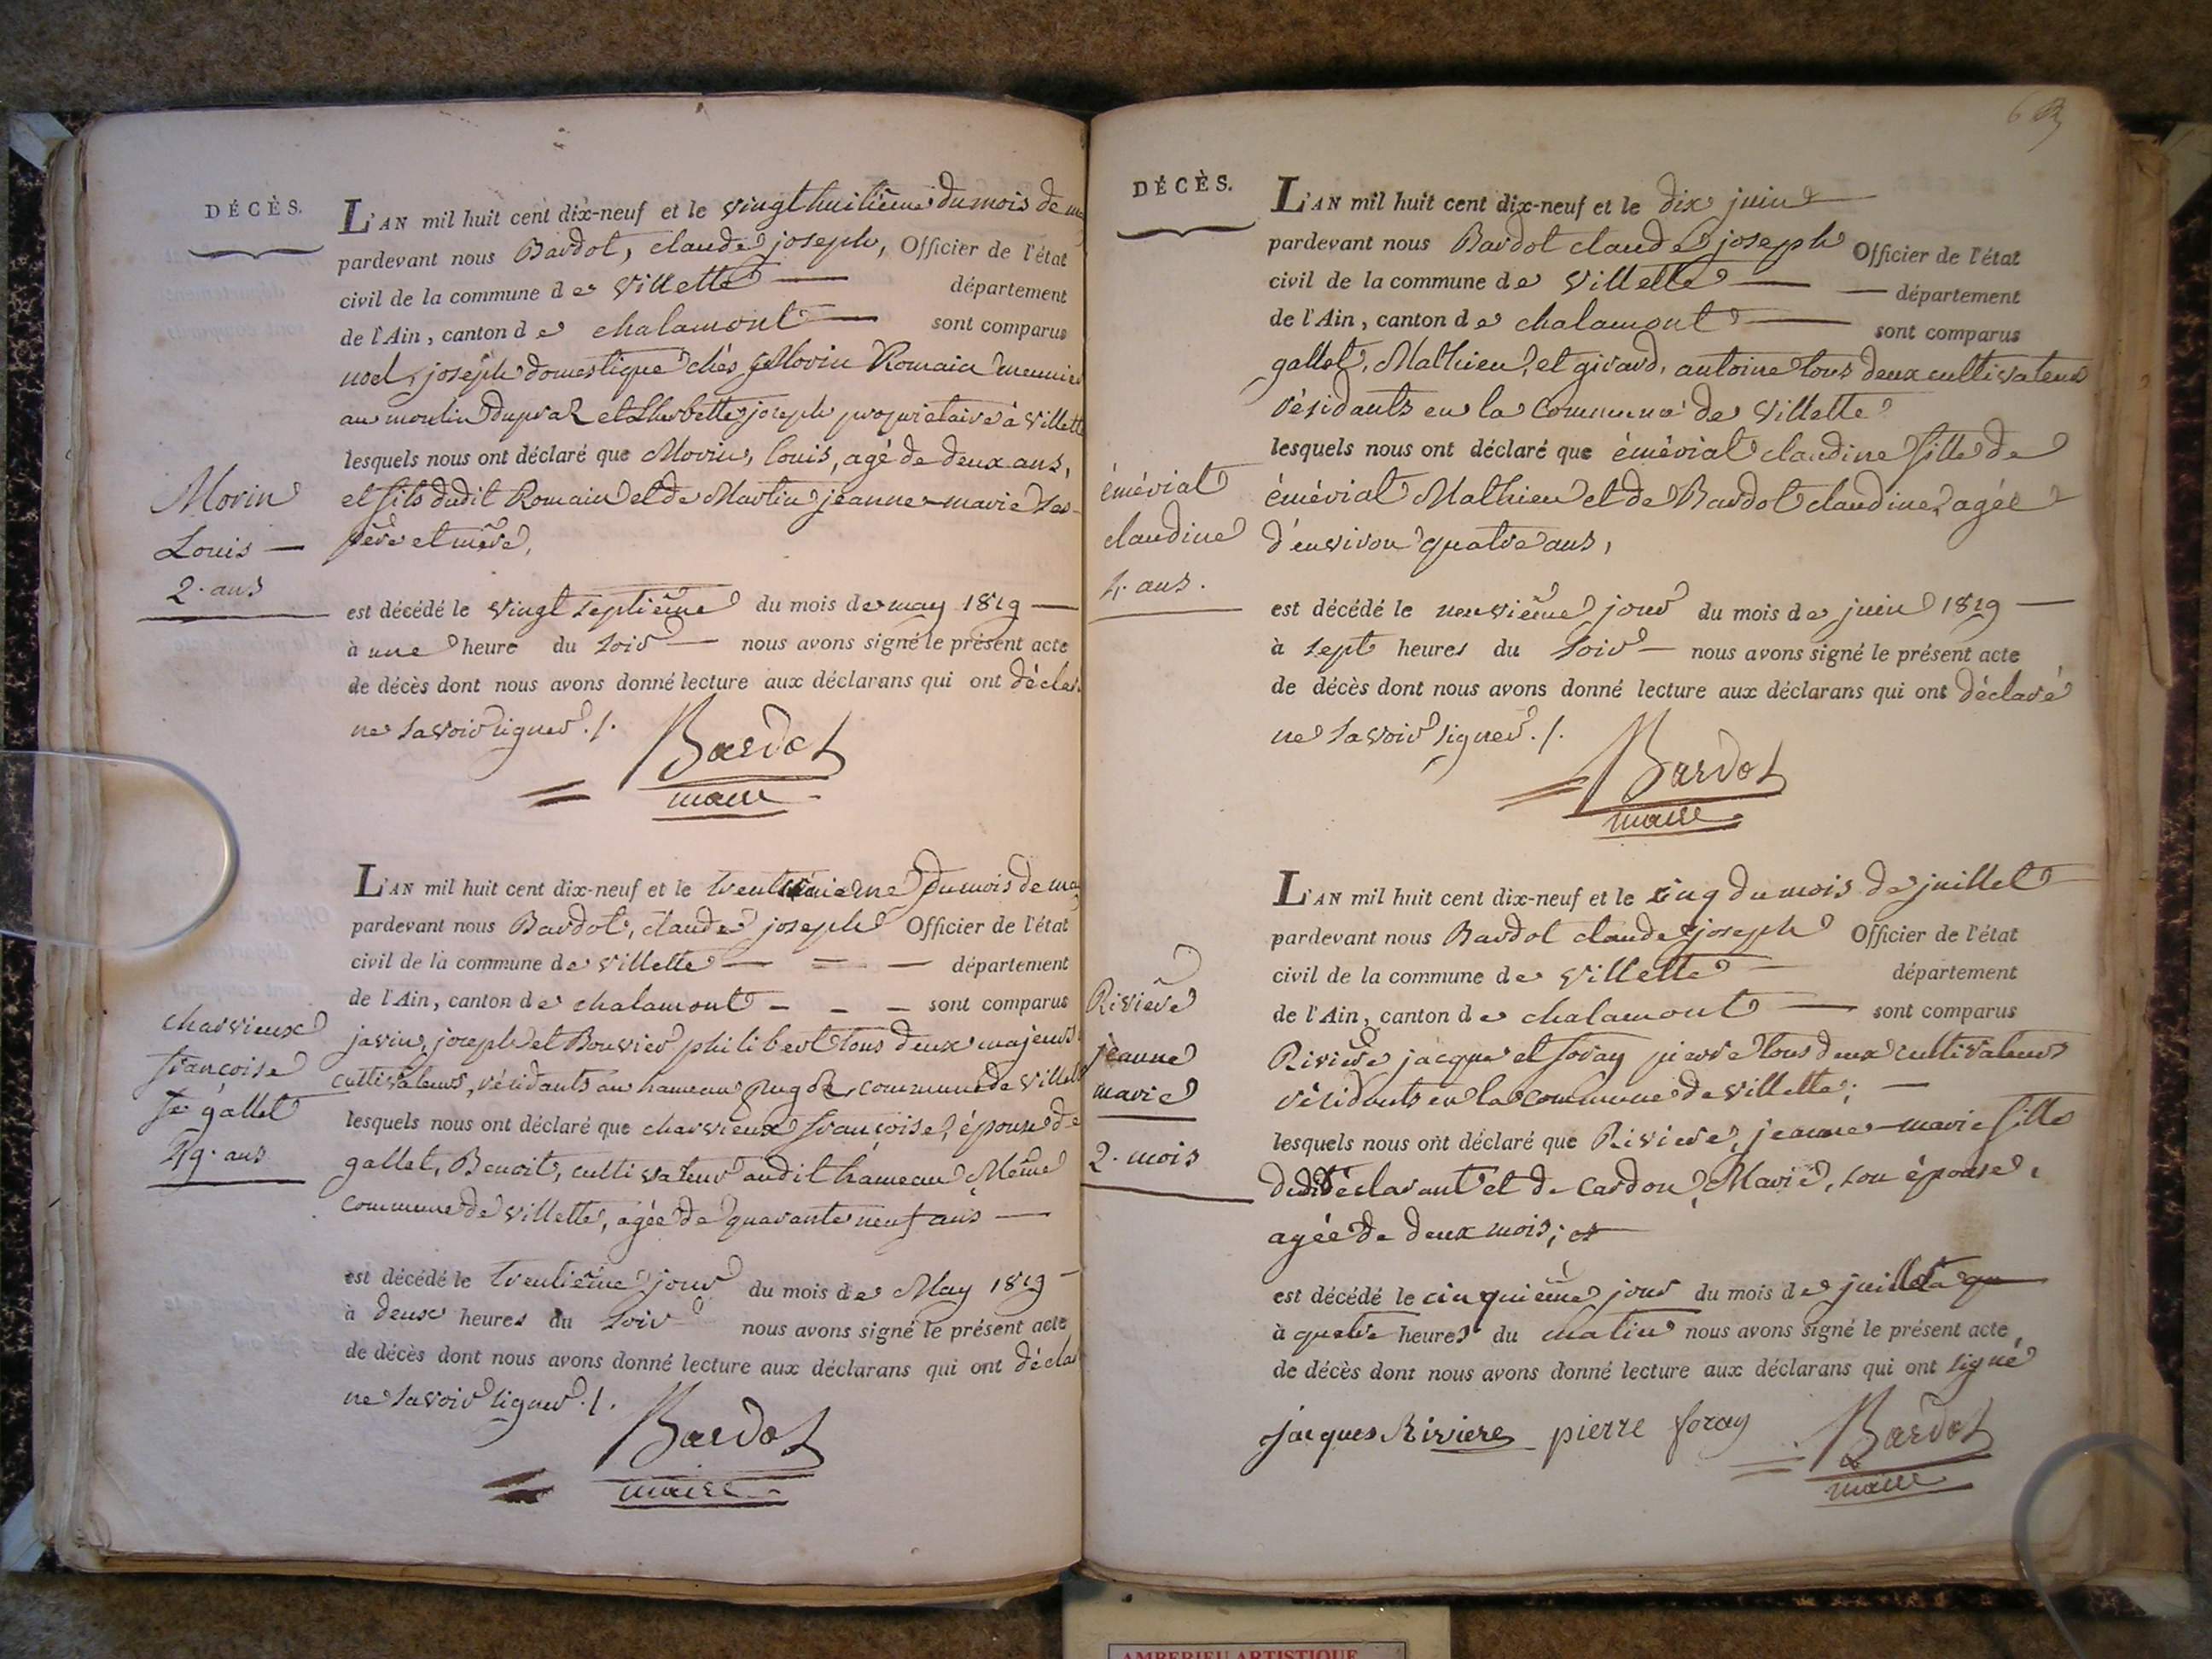 DÉCÈS.
L'AN mil huit cent dix-neuf et le vingt huitième du mois de
pardevant nous Bardot, claude joseph, Officier de l'état
civil de la commune de Villette — département
de l'Ain, canton de chalamont — sont comparus
noel, joseph domestique chés Morin Romain meunier
au moulin Duprat et Lherbette joseph propriétaire à Villette
lesquels nous ont déclaré que Morin, louis, agé de deux ans,
et fils dudit Romain et de Martin jeanne-marie ses
père et mère,
Morin
Louis —
2. ans
est décédé le vingt septième du mois de may 1819 —
à une heure du soir — nous avons signé le présent acte
de décès dont nous avons donné lecture aux déclarans qui ont
ne savoir signer ./.
Bardot
maire
L'AN mil huit cent dix-neuf et le du mois de
pardevant nous Bardot, claude joseph Officier de l'état
civil de la commune de villette — = — département
de l'Ain, canton de chalamont - - - sont comparus
javin, joseph et Bouvier philibert tous deux majeurs
cultivateurs, résidants au hameau commune de
lesquels nous ont déclaré que charvieux françoise, épouse de
gallet, Benoit, cultivateur audit hameau Même
commune de villette, agée de quarante neuf ans —
charvieux
françoise
fe gallet
49. ans
est décédé le trentième jour du mois de May 1819 -
à deux heures du soir nous avons signé le présent acte
de décès dont nous avons donné lecture aux déclarans qui ont
ne savoir signer ./.
Bardot
maire
DÉCÈS.
L'AN mil huit cent dix-neuf et le dix juin —
pardevant nous Bardot claude joseph Officier de l'état
civil de la commune de Villette — — département
de l'Ain, canton de chalamont — sont comparus
gallet, Mathieu, et girard, antoine tous deux cultivateurs
résidants en la commune de Villette
lesquels nous ont déclaré que émériat claudine fille de
émériat Mathieu et de Bardot claudine, agée
d'environ quatre ans,
émériat
claudine
4. ans.
est décédé le neuvième jour du mois de juin 1819 —
à sept heures du soir — nous avons signé le présent acte
de décès dont nous avons donné lecture aux déclarans qui ont déclaré
ne savoir signer ./.
Bardot
maire
L'AN mil huit cent dix-neuf et le cinq du mois de juillet
pardevant nous Bardot claude joseph Officier de l'état
civil de la commune de Villette — département
de l'Ain, canton de chalamont — sont comparus
Riviere jacque et foray pierre tous deux cultivateurs
résidants en la commune de villette; —
lesquels nous ont déclaré que Riviere, jeanne-marie fille
dudit déclarant et de Cardon, Marie, son épouse,
agée de deux mois;
Riviere
jeanne
marie
2. mois
est décédé le cinquième jour du mois de juillet
à quatre heures du matin nous avons signé le présent acte,
de décès dont nous avons donné lecture aux déclarans qui ont signé
jacques Riviere pierre foray Bardot
maire
AMBERIEU ARTISTIQUE